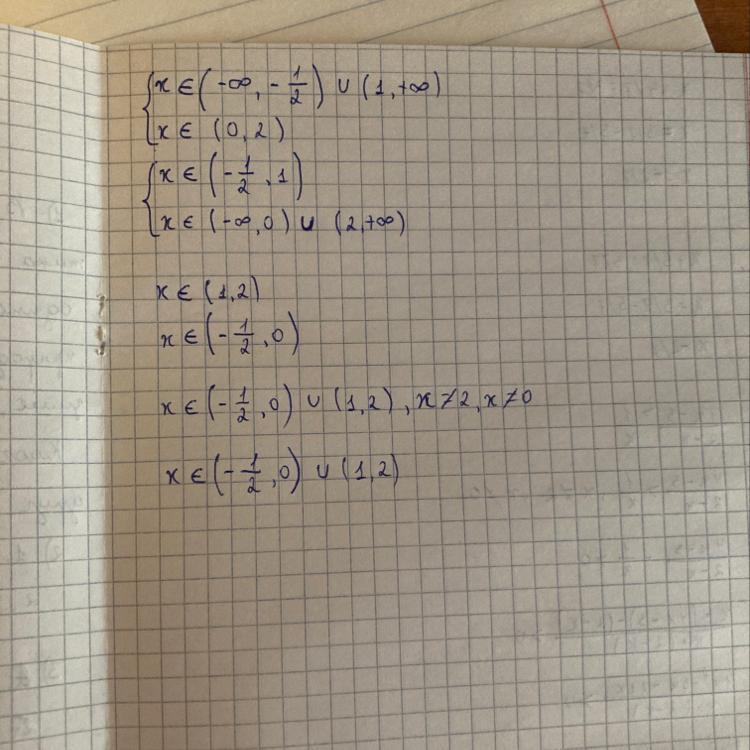 { x ∈ (-∞, -1/2) ∪ (1, +∞)
x ∈ (0, 2)
{ x ∈ (-1/2, 1)
x ∈ (-∞, 0) ∪ (2, +∞)
x ∈ (1, 2)
x ∈ (-1/2, 0)
x ∈ (-1/2, 0) ∪ (1, 2), x ≠ 2, x ≠ 0
x ∈ (-1/2, 0) ∪ (1, 2)